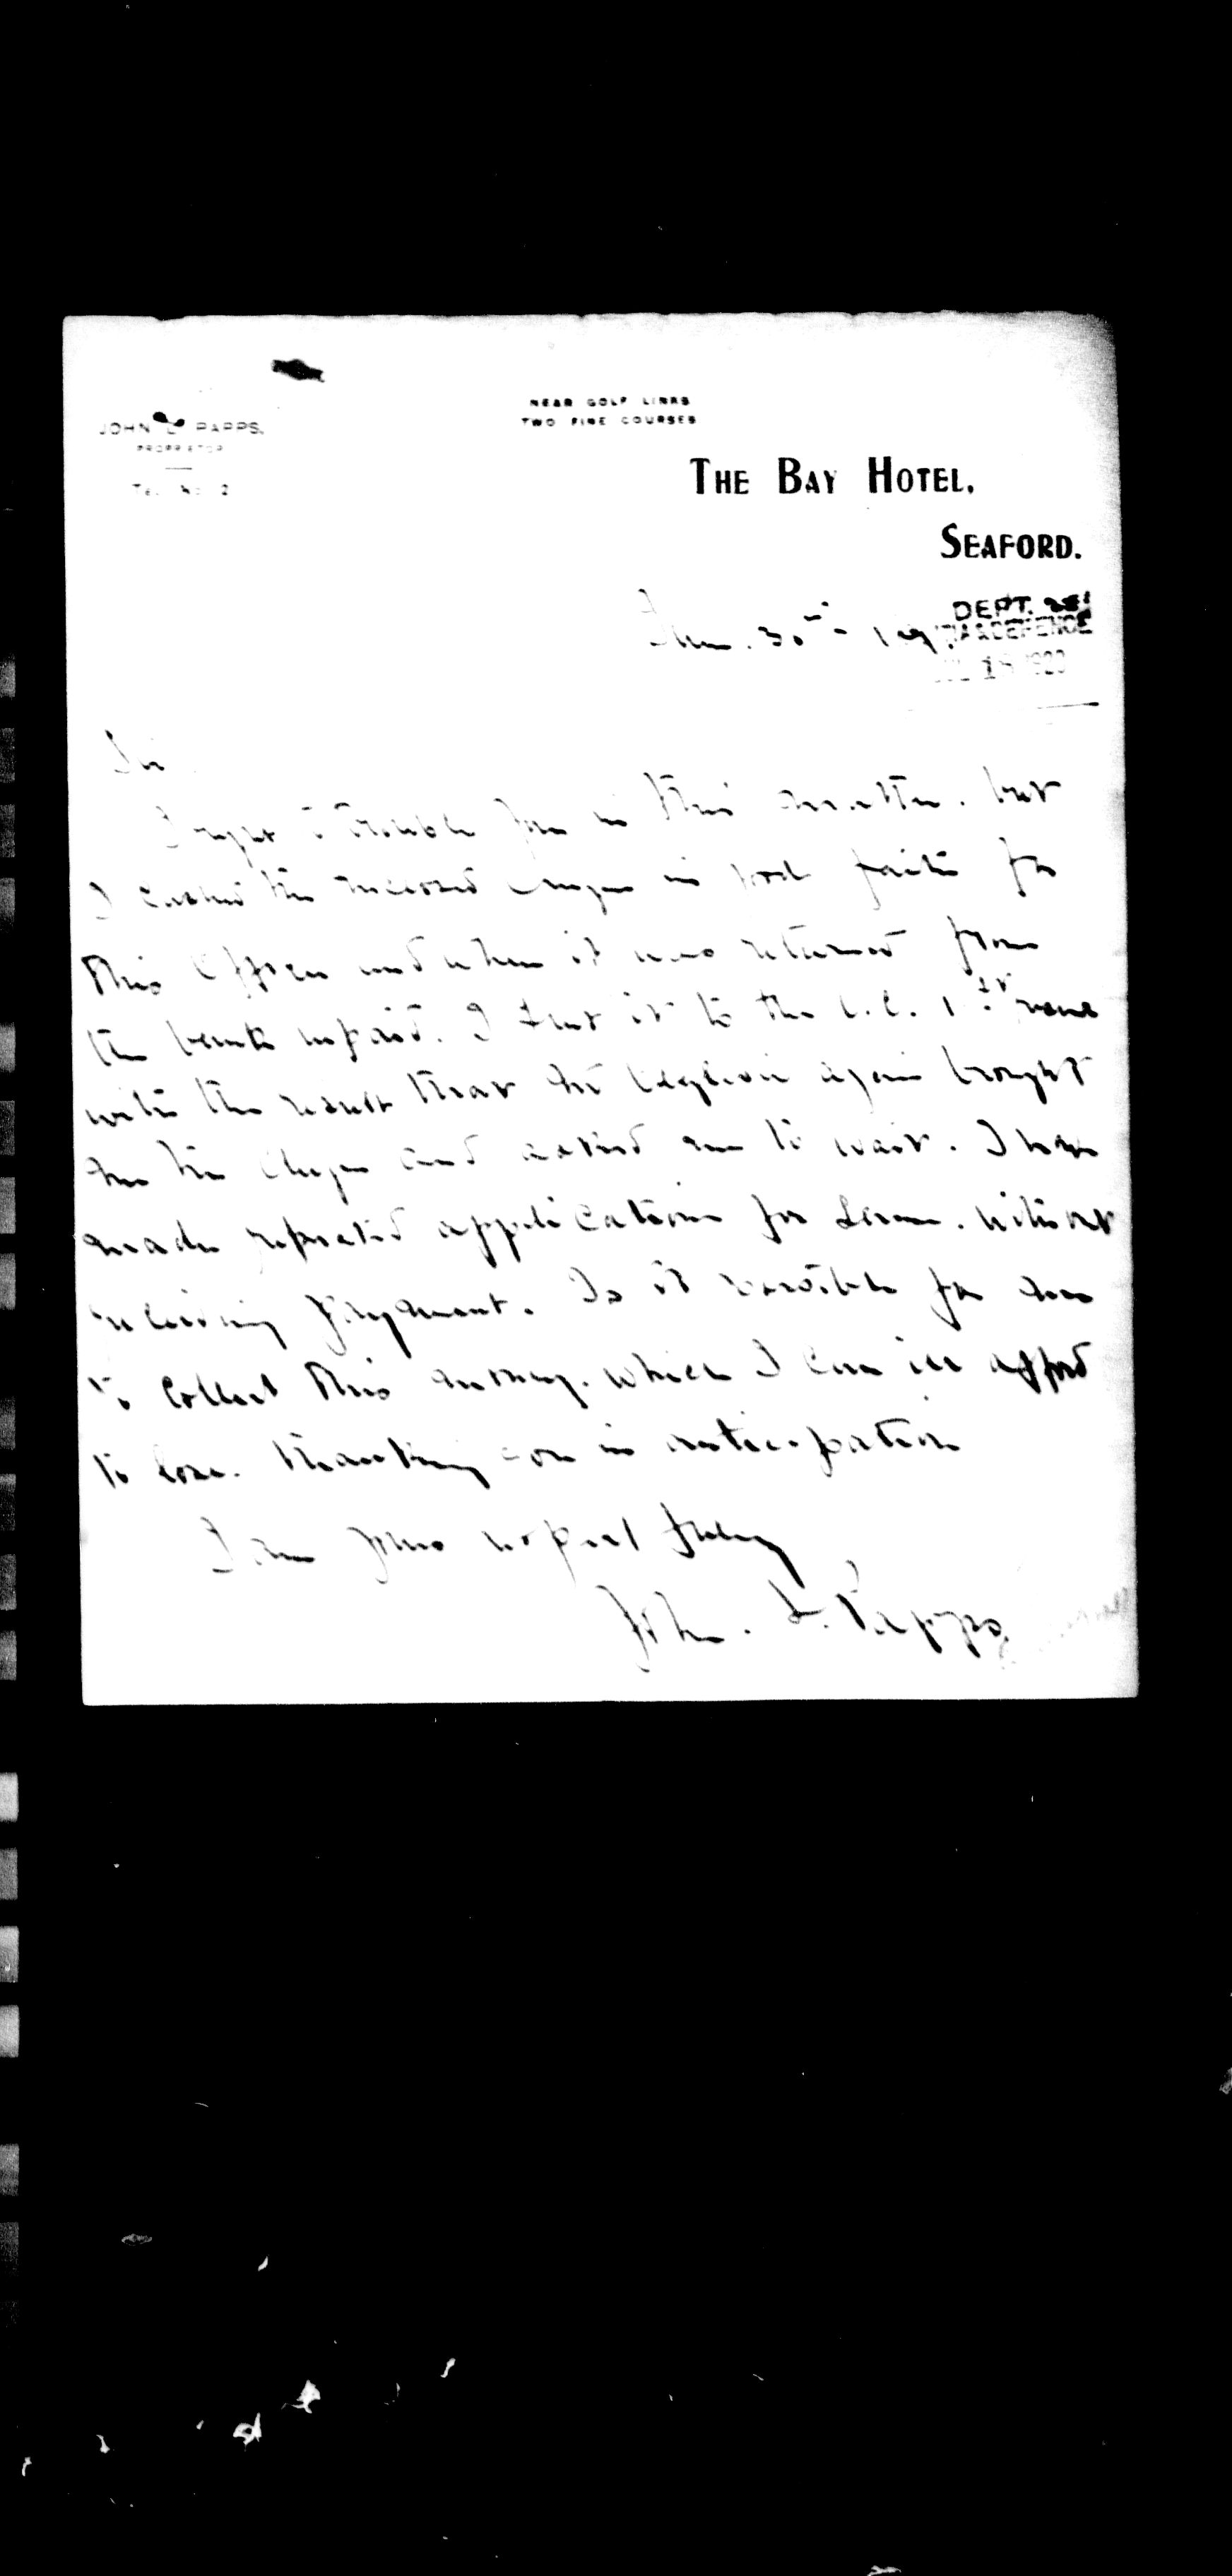 JOHN L PAPPS.
PROPRIETOR
Tel. No. 2
NEAR GOLF LINKS
TWO FINE COURSES
THE BAY HOTEL,
SEAFORD.
30th - 19
DEPT.
MILITIA & DEFENCE
JUL 15 1920
Sir
I regret to trouble you in this matter. but
I cashed the enclosed cheque in good faith for
this Officer and when it was returned from
the bank unpaid. I sent it to the C.C.
with the result that he again brought
me the cheque and asked me to wait. I have
made repeated applications for same. without
receiving payment. Is it possible for me
to collect this money. which I can ill afford
to lose. Thanking you in anticipation
I am yours respectfully
John. L. Papps.